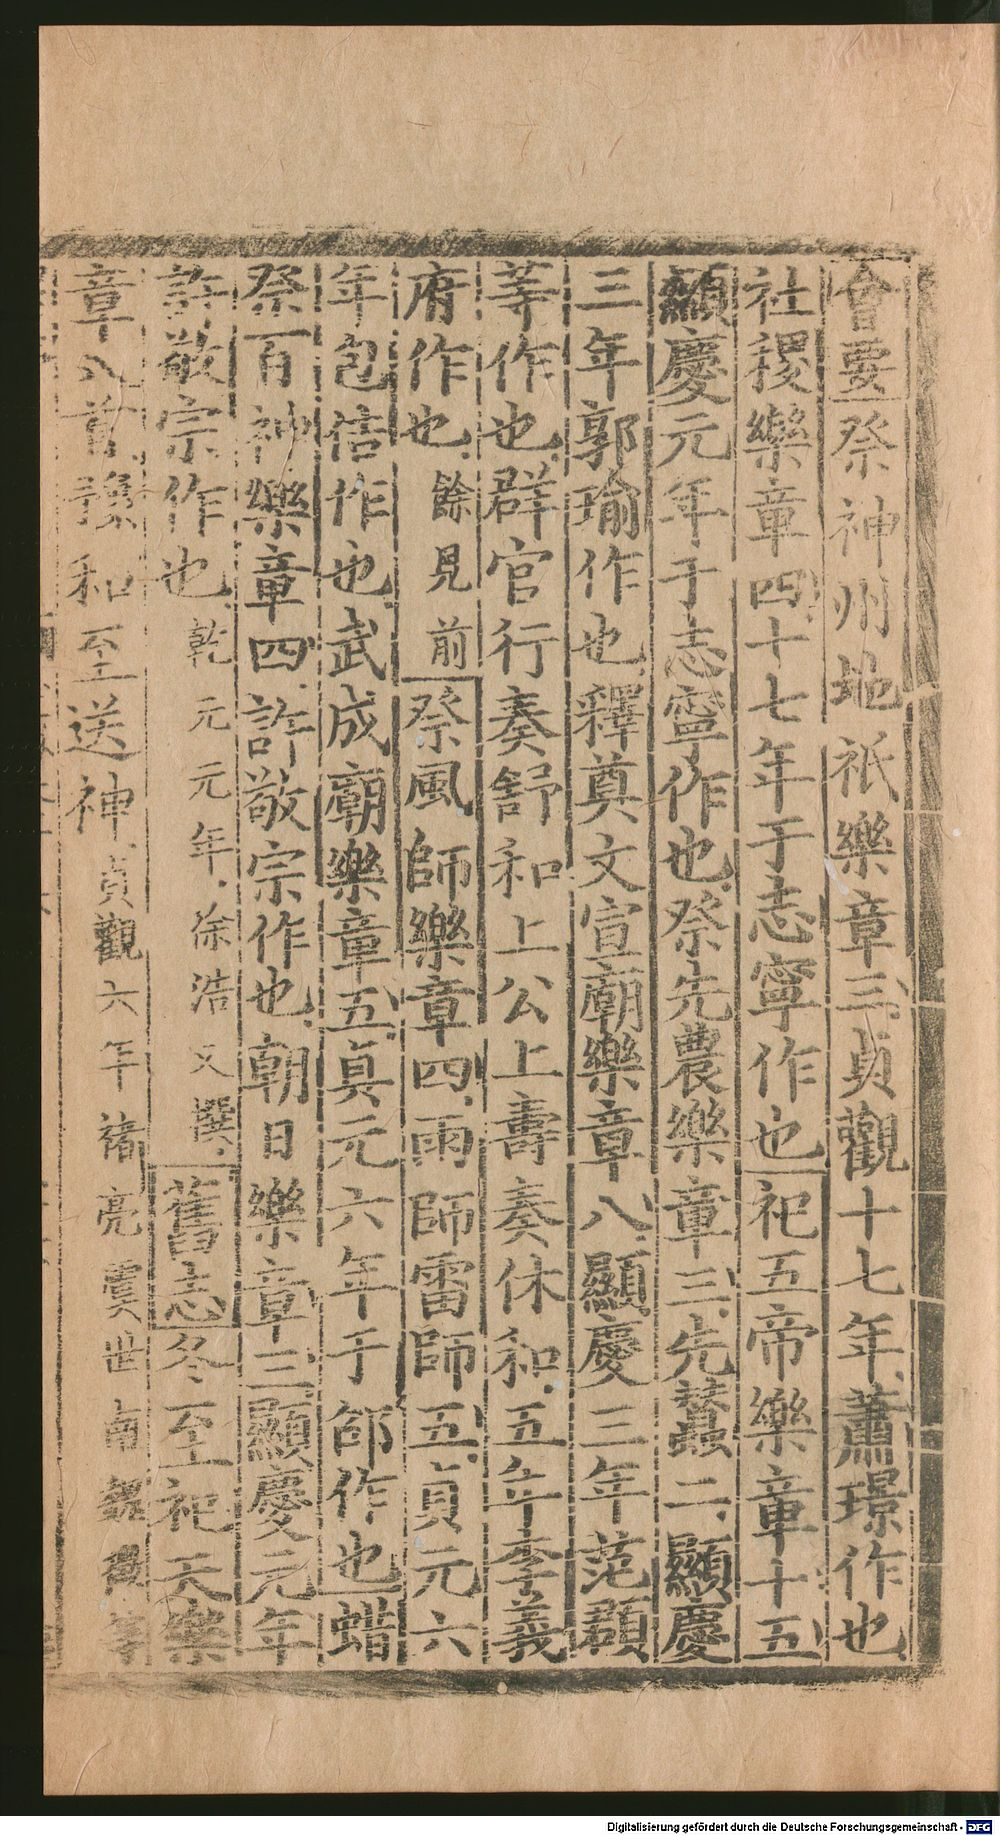 會要祭神州地祇樂章三貞觀十七年蕭璟作也
社稷樂章四十七年于志寧作也祀五帝樂章十五
顯慶元年于志寧作也祭先農樂章三先蠶二顯慶
三年郭瑜作也釋奠文宣廟樂章八顯慶三年范頵
等作也群官行奏舒和上公上壽奏休和五年李義
府作也餘見前祭風師樂章四雨師雷師五貞元六
年包佶作也武成廟樂章五貞元六年于邵作也蜡
祭百神樂章四許敬宗作也朝日樂章三顯慶元年
許敬宗作也乾元元年徐浩又撰舊志冬至祀天樂
章八首豫和至送神貞觀六年褚亮虞世南魏徵等
Digitalisierung gefördert durch die Deutsche Forschungsgemeinschaft - DFG